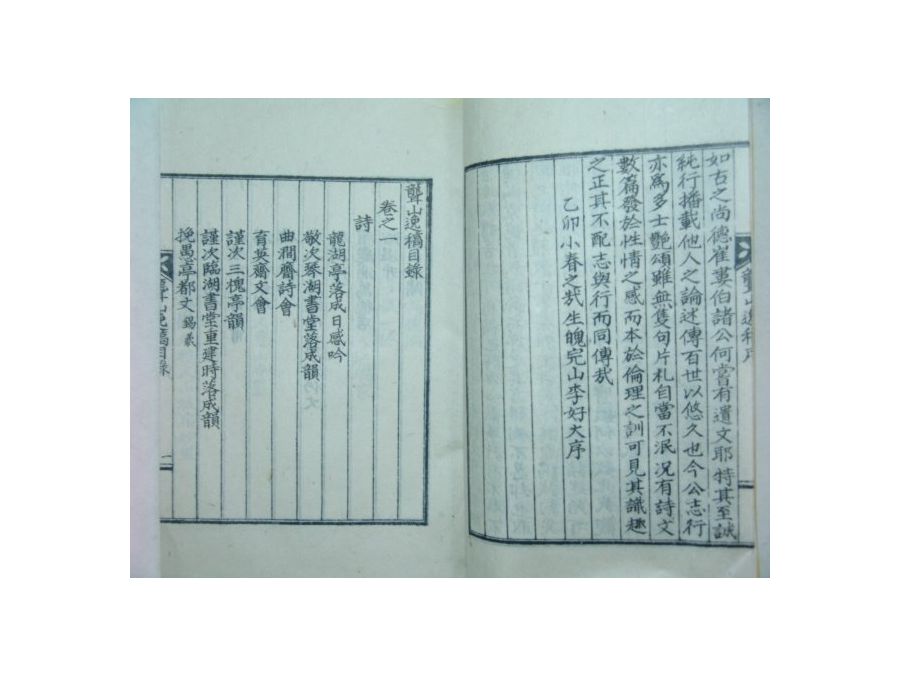 如古之尚德崔婁伯諸公何嘗有遺文耶特其至誠
純行播載他人之論述傳百世以悠久也今公志行
亦爲多士艶頌雖無隻句片札自當不泯况有詩文
數篇發於性情之感而本於倫理之訓可見其識趣
之正其不配志與行而同傳哉
乙卯小春之哉生魄完山李好大序
聾山逸稿目錄
卷之一
詩
龍湖亭落成日感吟
敬次琴湖書堂落成韻
曲澗齋詩會
育英齋文會
謹次三槐亭韻
謹次臨湖書堂重建時落成韻
挽愚亭都文 錫羲